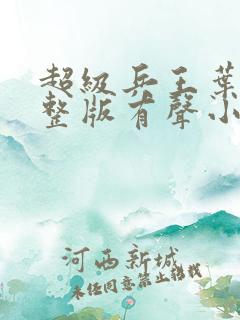 超級兵王葉
整版有聲小
河西新城
未经同意禁止转载